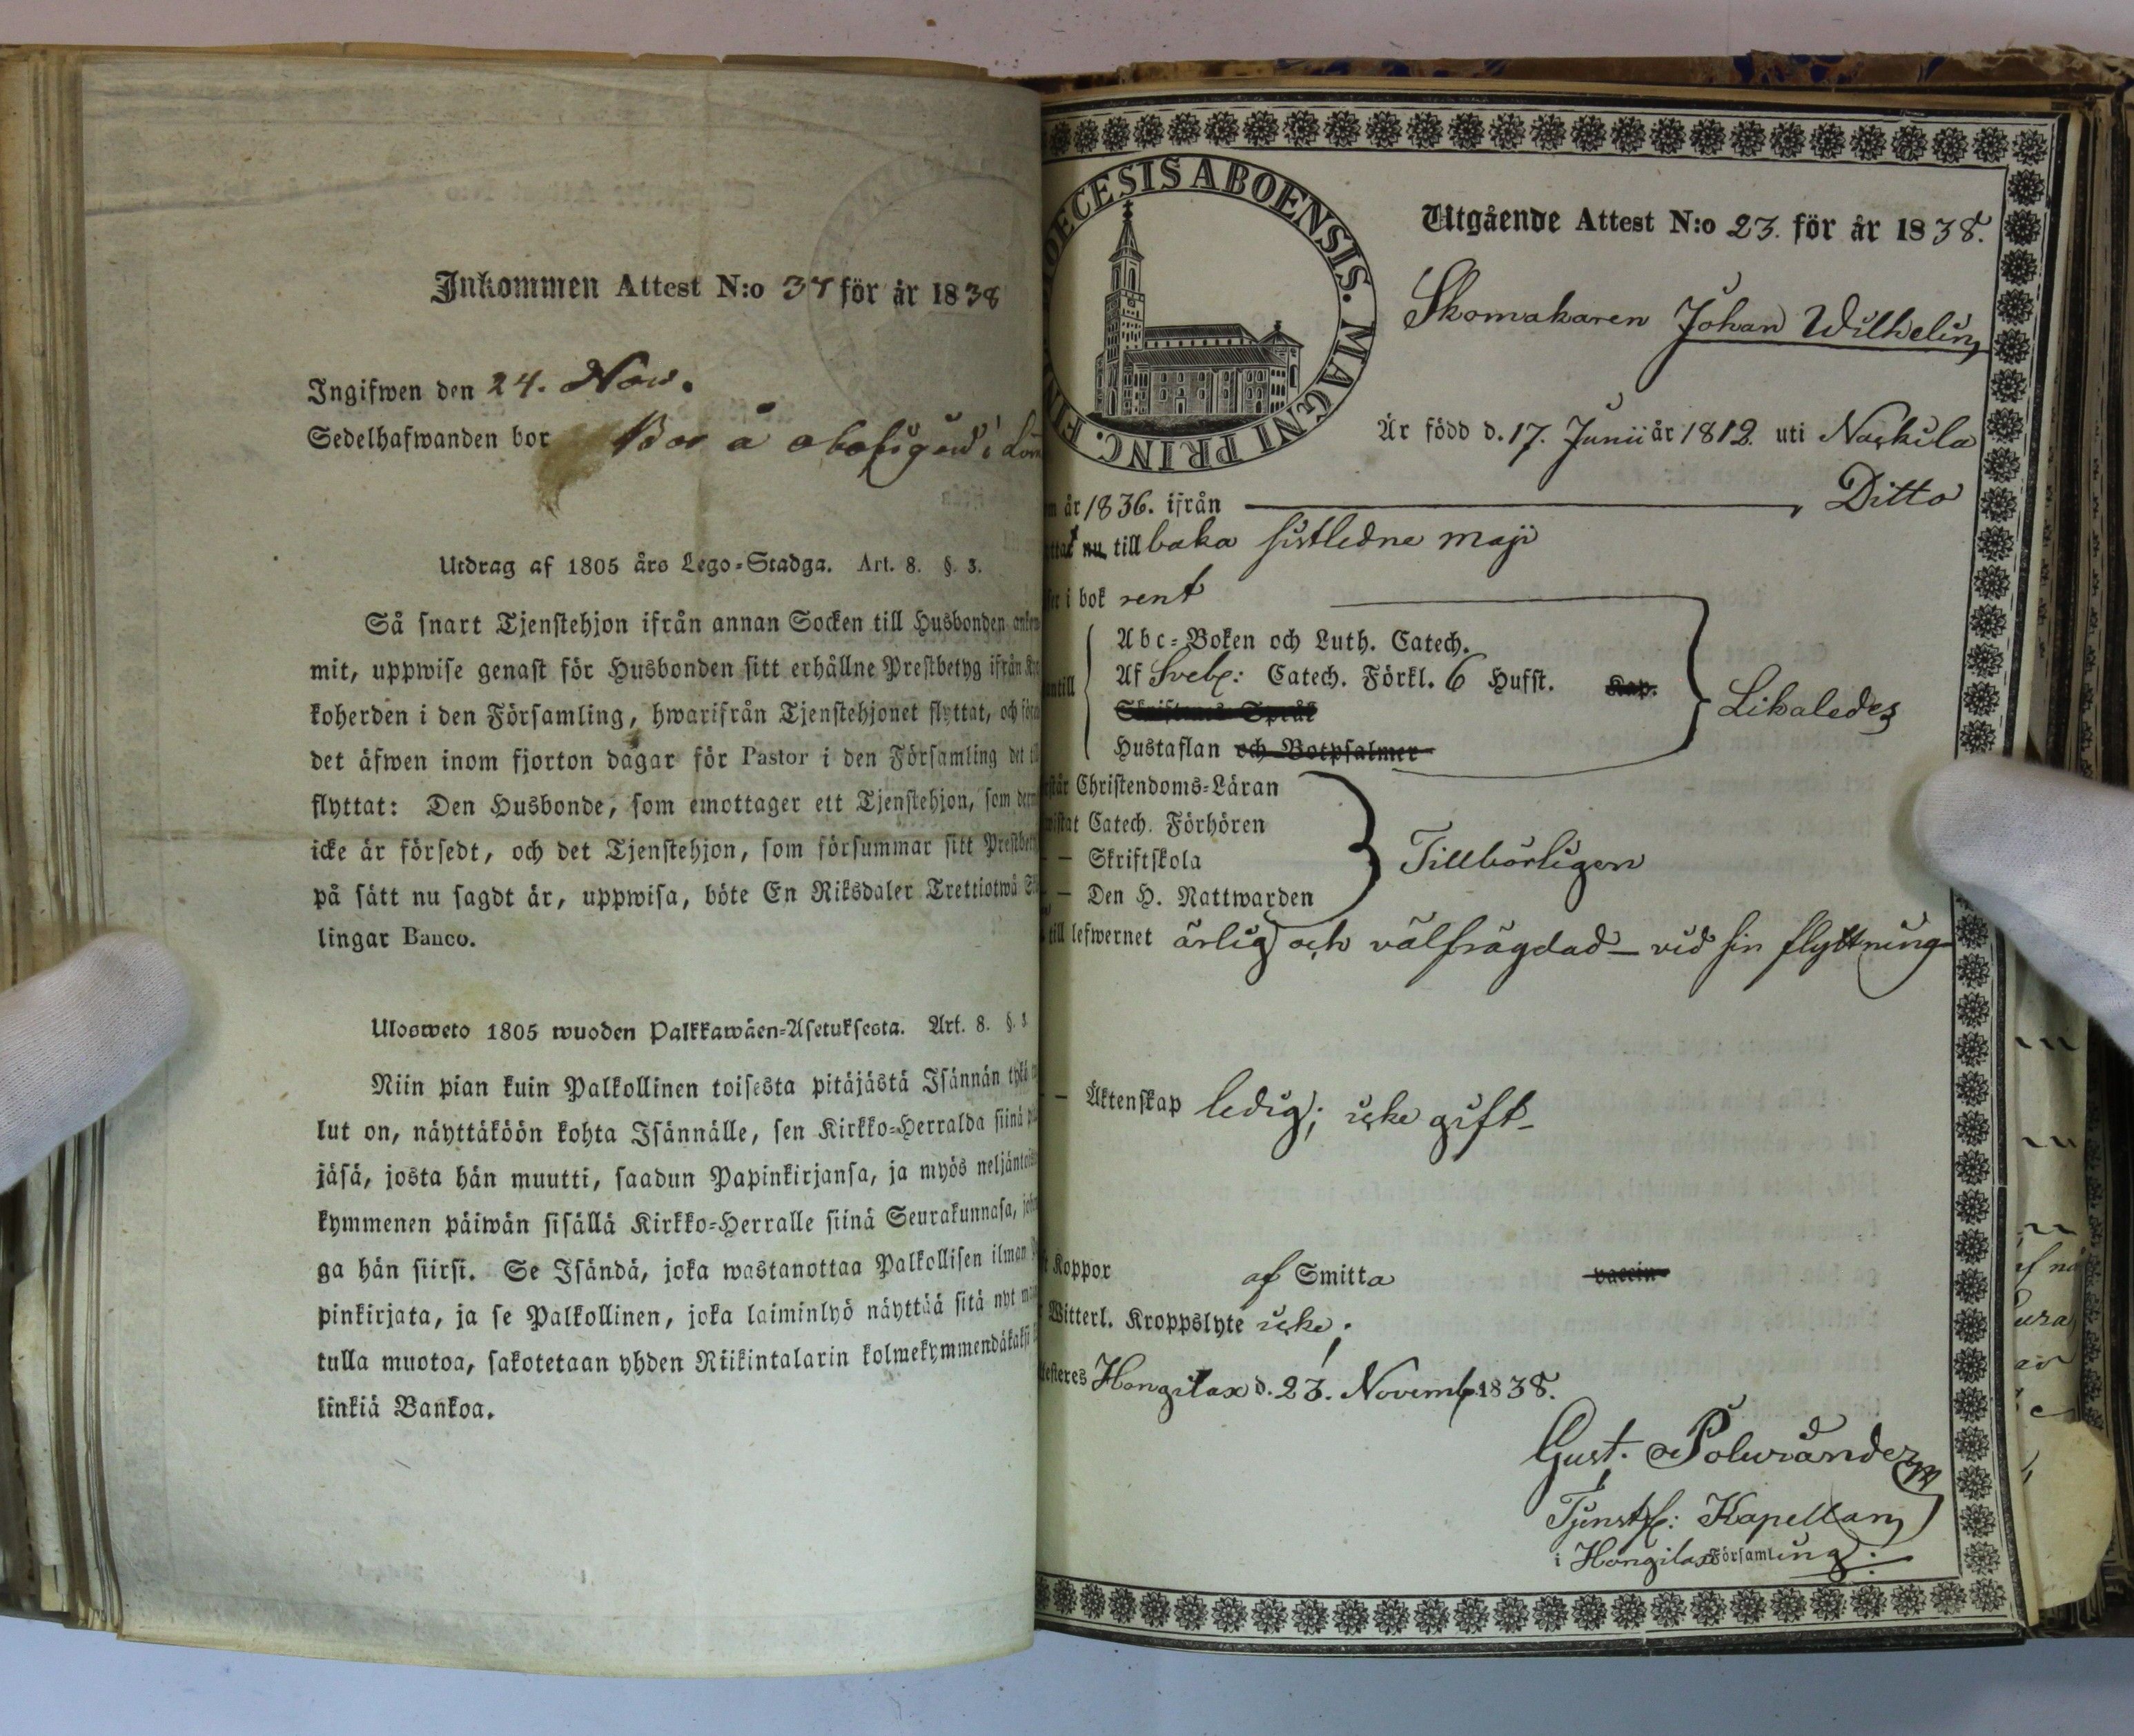 Inkommen Attest N:o 37 för år 1838
Ingifwen den 24. Nov.
Sedelhafwanden bor
Utdrag af 1805 års Lego-Stadga. Art. 8. §. 3.
Så snart Tjenstehjon ifrån annan Socken till Husbonden
mit, uppwise genast för Husbonden sitt erhållne Prestbetyg ifrån
koherden i den Församling, hwarifrån Tjenstehjonet flyttat, och
det äfwen inom fjorton dagar för Pastor i den Församling det
flyttat: Den Husbonde, som emottager ett Tjenstehjon, som
icke är försedt, och det Tjenstehjon, som försummar sitt
på sätt nu sagdt är, uppwisa, böte En Riksdaler Trettiotwå
lingar Banco.
Ulosweto 1805 wuoden Palkkawäen-Asetuksesta. Art. 8. §. 3
Niin pian kuin Palkollinen toisesta pitäjästä Isännän tykö
lut on, näyttäköön kohta Isännälle, sen Kirkko-Herralda siinä
jäsä, josta hän muutti, saadun Papinkirjansa, ja myös
kymmenen päiwän sisällä Kirkko-Herralle siinä Seurakunnasa,
ga hän siirsi. Se Isändä, joka wastanottaa Palkollisen ilman
pinkirjata, ja se Palkollinen, joka laiminlyö näyttää sitä nyt
tulla muotoa, sakotetaan yhden Riikintalarin kolmekymmendäkaksi
linkiä Bankoa.
OECESIS ABOENSIS. MAGNI PRINC. FIN
Utgående Attest N:o 23. för år 1838.
Skomakaren Johan Wilhelm
Är född d. 17. Junii år 1812. uti Naskila
år 1836. ifrån Ditto
nu till baka sistledne maji
i bok rent
Abc-Boken och Luth. Catech.
Af Sveb: Catech. Förkl. 6 Hufst. Kap.
Skriftens Språk
Hustaflan och Botpsalmer
Likaledes
Christendoms-Läran
Catech. Förhören
— Skriftskola
— Den H. Nattwarden
Tillbörligen
till lefwernet ärlig och välfrägdad – vid sin flyttning
— Äktenskap ledig; icke gift –
Koppor af Smitta vaccin
Witterl. Kroppslyte icke;
Hongilax d. 23. Novemb. 1838.
Gust. Polviander
Tjenstf: Kapellan
i Hongilax Församling: